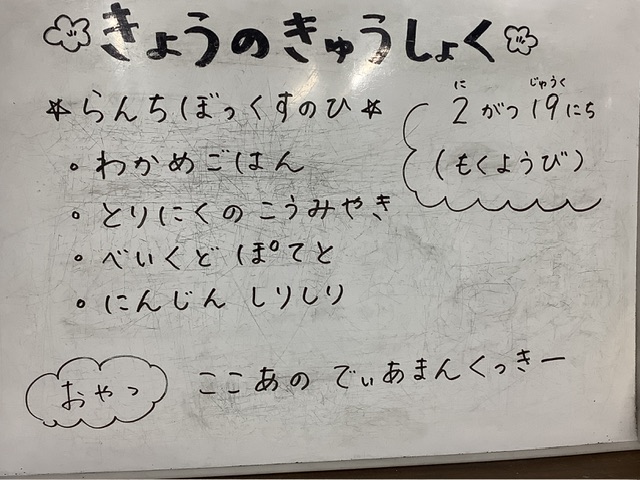 きょうのきゅうしょく
に じゅうく
2がつ19にち
(もくようび)
*らんちぼっくすのひ*
・わかめごはん
・とりにくのこうみやき
・べいくどぽてと
・にんじんしりしり
おやつ
ここあのでぃあまんくっきー